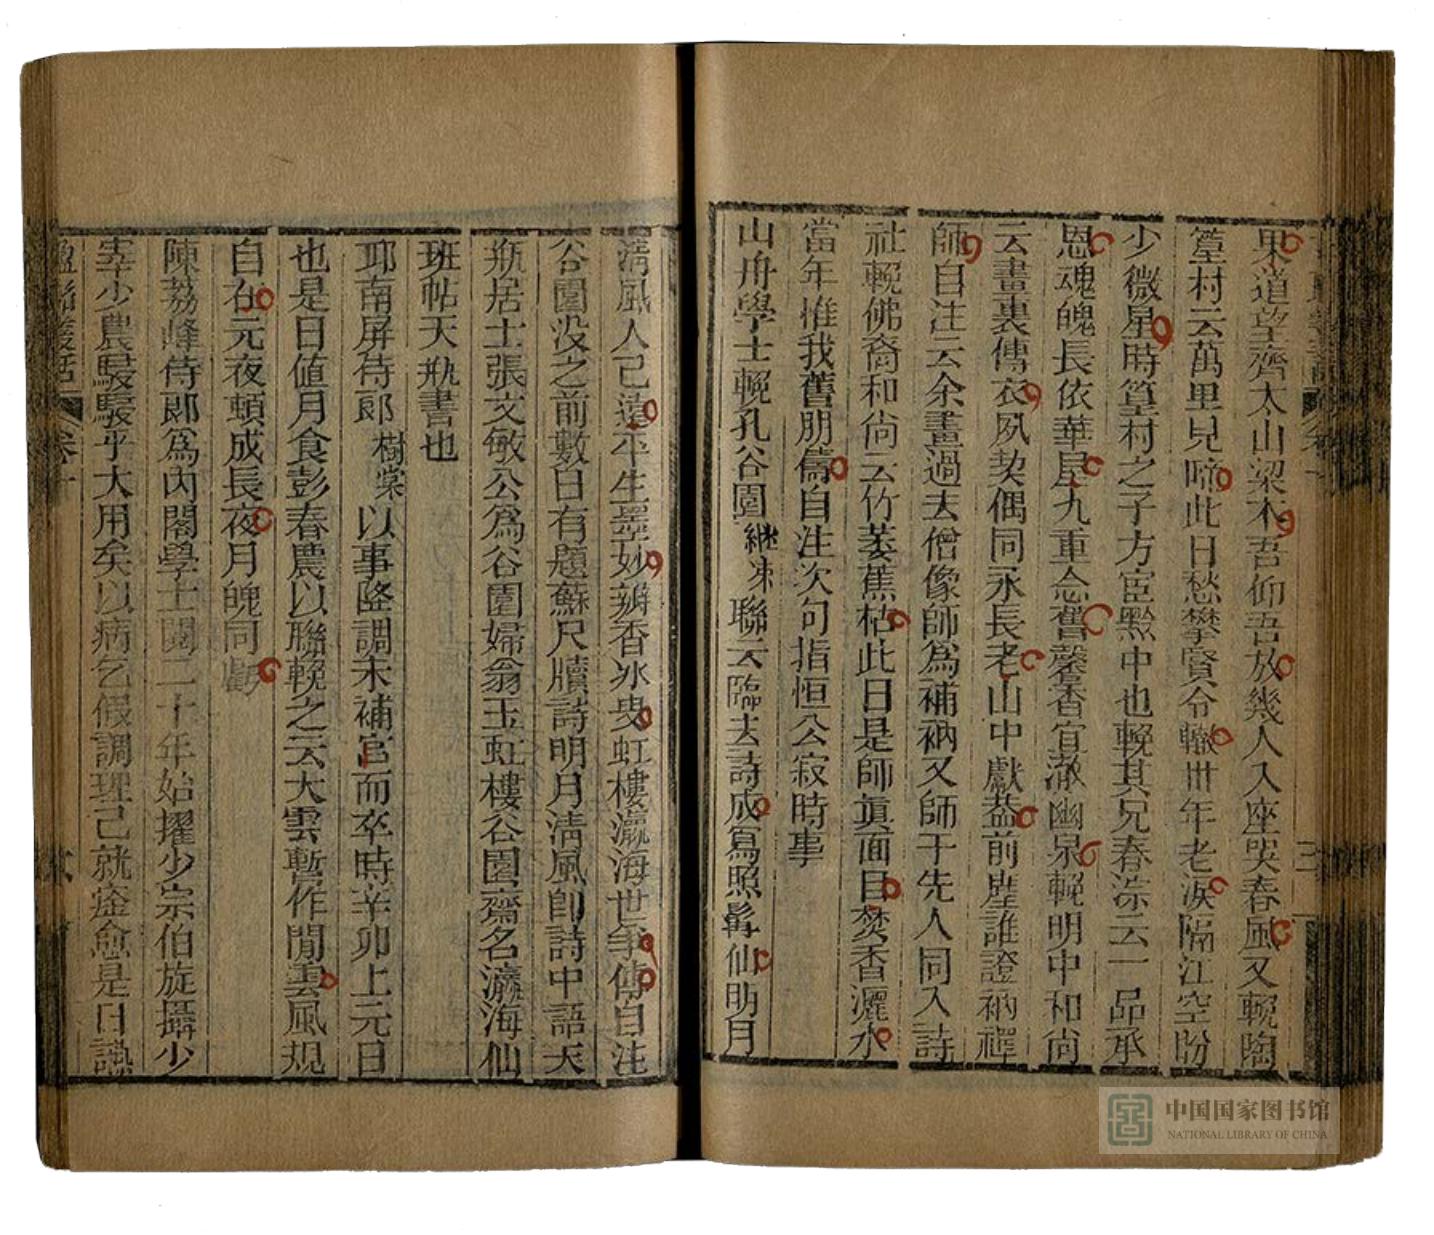 果道望齊太山梁木吾仰吾放幾人入座哭春風又輓陶
篁村云萬里兒啼此日愁攀賢令轍卅年老淚隔江空盼
少微星時篁村之子方宦黔中也輓其兄春淙云一品承
恩魂魄長依華屋九重念舊馨香宜澈幽泉輓明中和尚
云畫裏傳衣夙契偶同永長老山中獻菾前塵誰證衲禪
師自注云余畫過去僧像師為補衲又師于先人同入詩
社輓佛裔和尚云竹萎蕉枯此日是師眞面目焚香灑水
當年惟我舊朋儔自注次句指恒公寂時事
山舟學士輓孔谷園繼涑聯云臨去詩成寫照髯仙明月
清風人已遠平生墨妙瓣香氷叟虹樓瀛海世爭傳自注
谷園没之前數日有題蘇尺牘詩明月淸風卽詩中語天
瓶居士張文敏公爲谷園婦翁玉虹樓谷園齋名瀛海仙
班帖天瓶書也
邱南屏侍郞樹棠以事降調未補官而卒時辛卯上元日
也是日値月食彭春農以聯輓之云大雲暫作閒雲風規
自在元夜頓成長夜月魄同虧
陳荔峰侍郞爲內閣學士閱二十年始擢少宗伯旋攝少
宰少農駸駸乎大用矣以病乞假調理已就痊愈是日熱
楹聯叢話 卷十
中国国家图书馆
NATIONAL LIBRARY OF CHINA